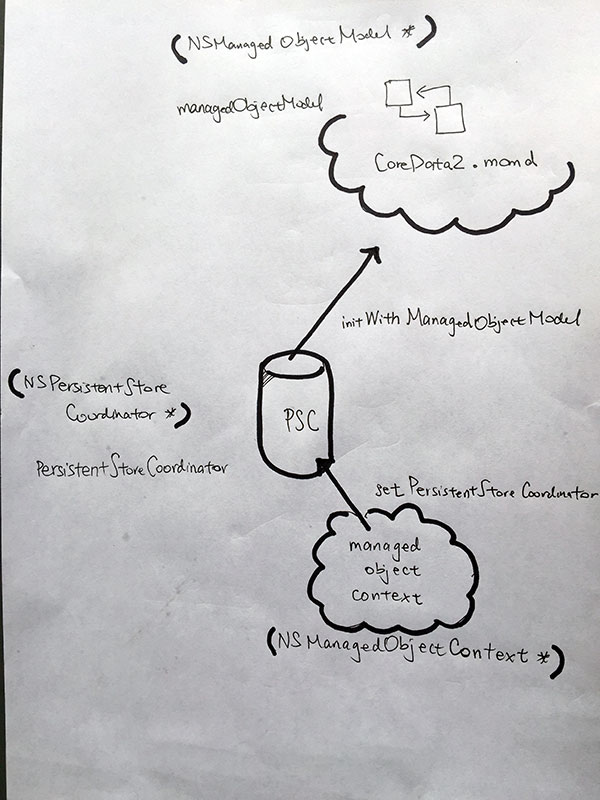 (NSManaged ObjectModel *)
managedObjectModel
CoreData2.momd
initWith ManagedObjectModel
(NSPersistentStore
Coordinator *)
PSC
PersistentStoreCoordinator
set PersistentStore Coordinator
managed
object
context
(NSManagedObjectContext *)